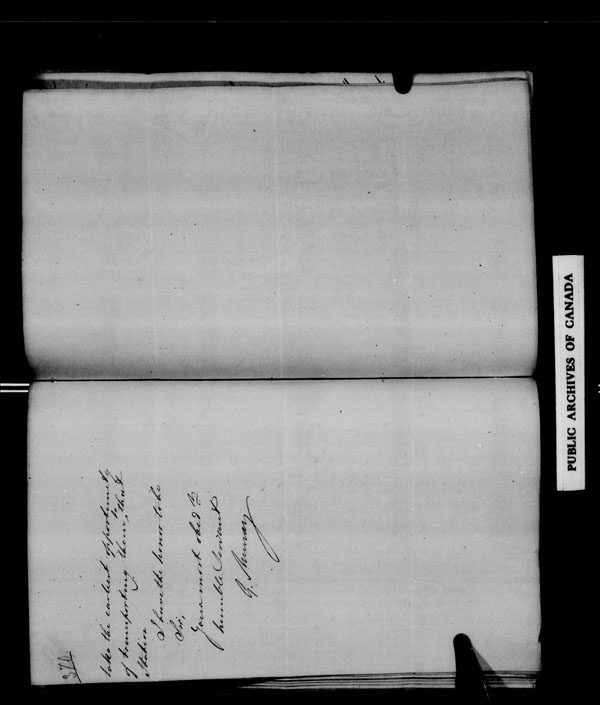 374
take the earliest opportunity
of transporting them to that
Station
I have the honor to be
Sir,
Your most obed.t
humble Servant
G. Murray
PUBLIC ARCHIVES OF CANADA